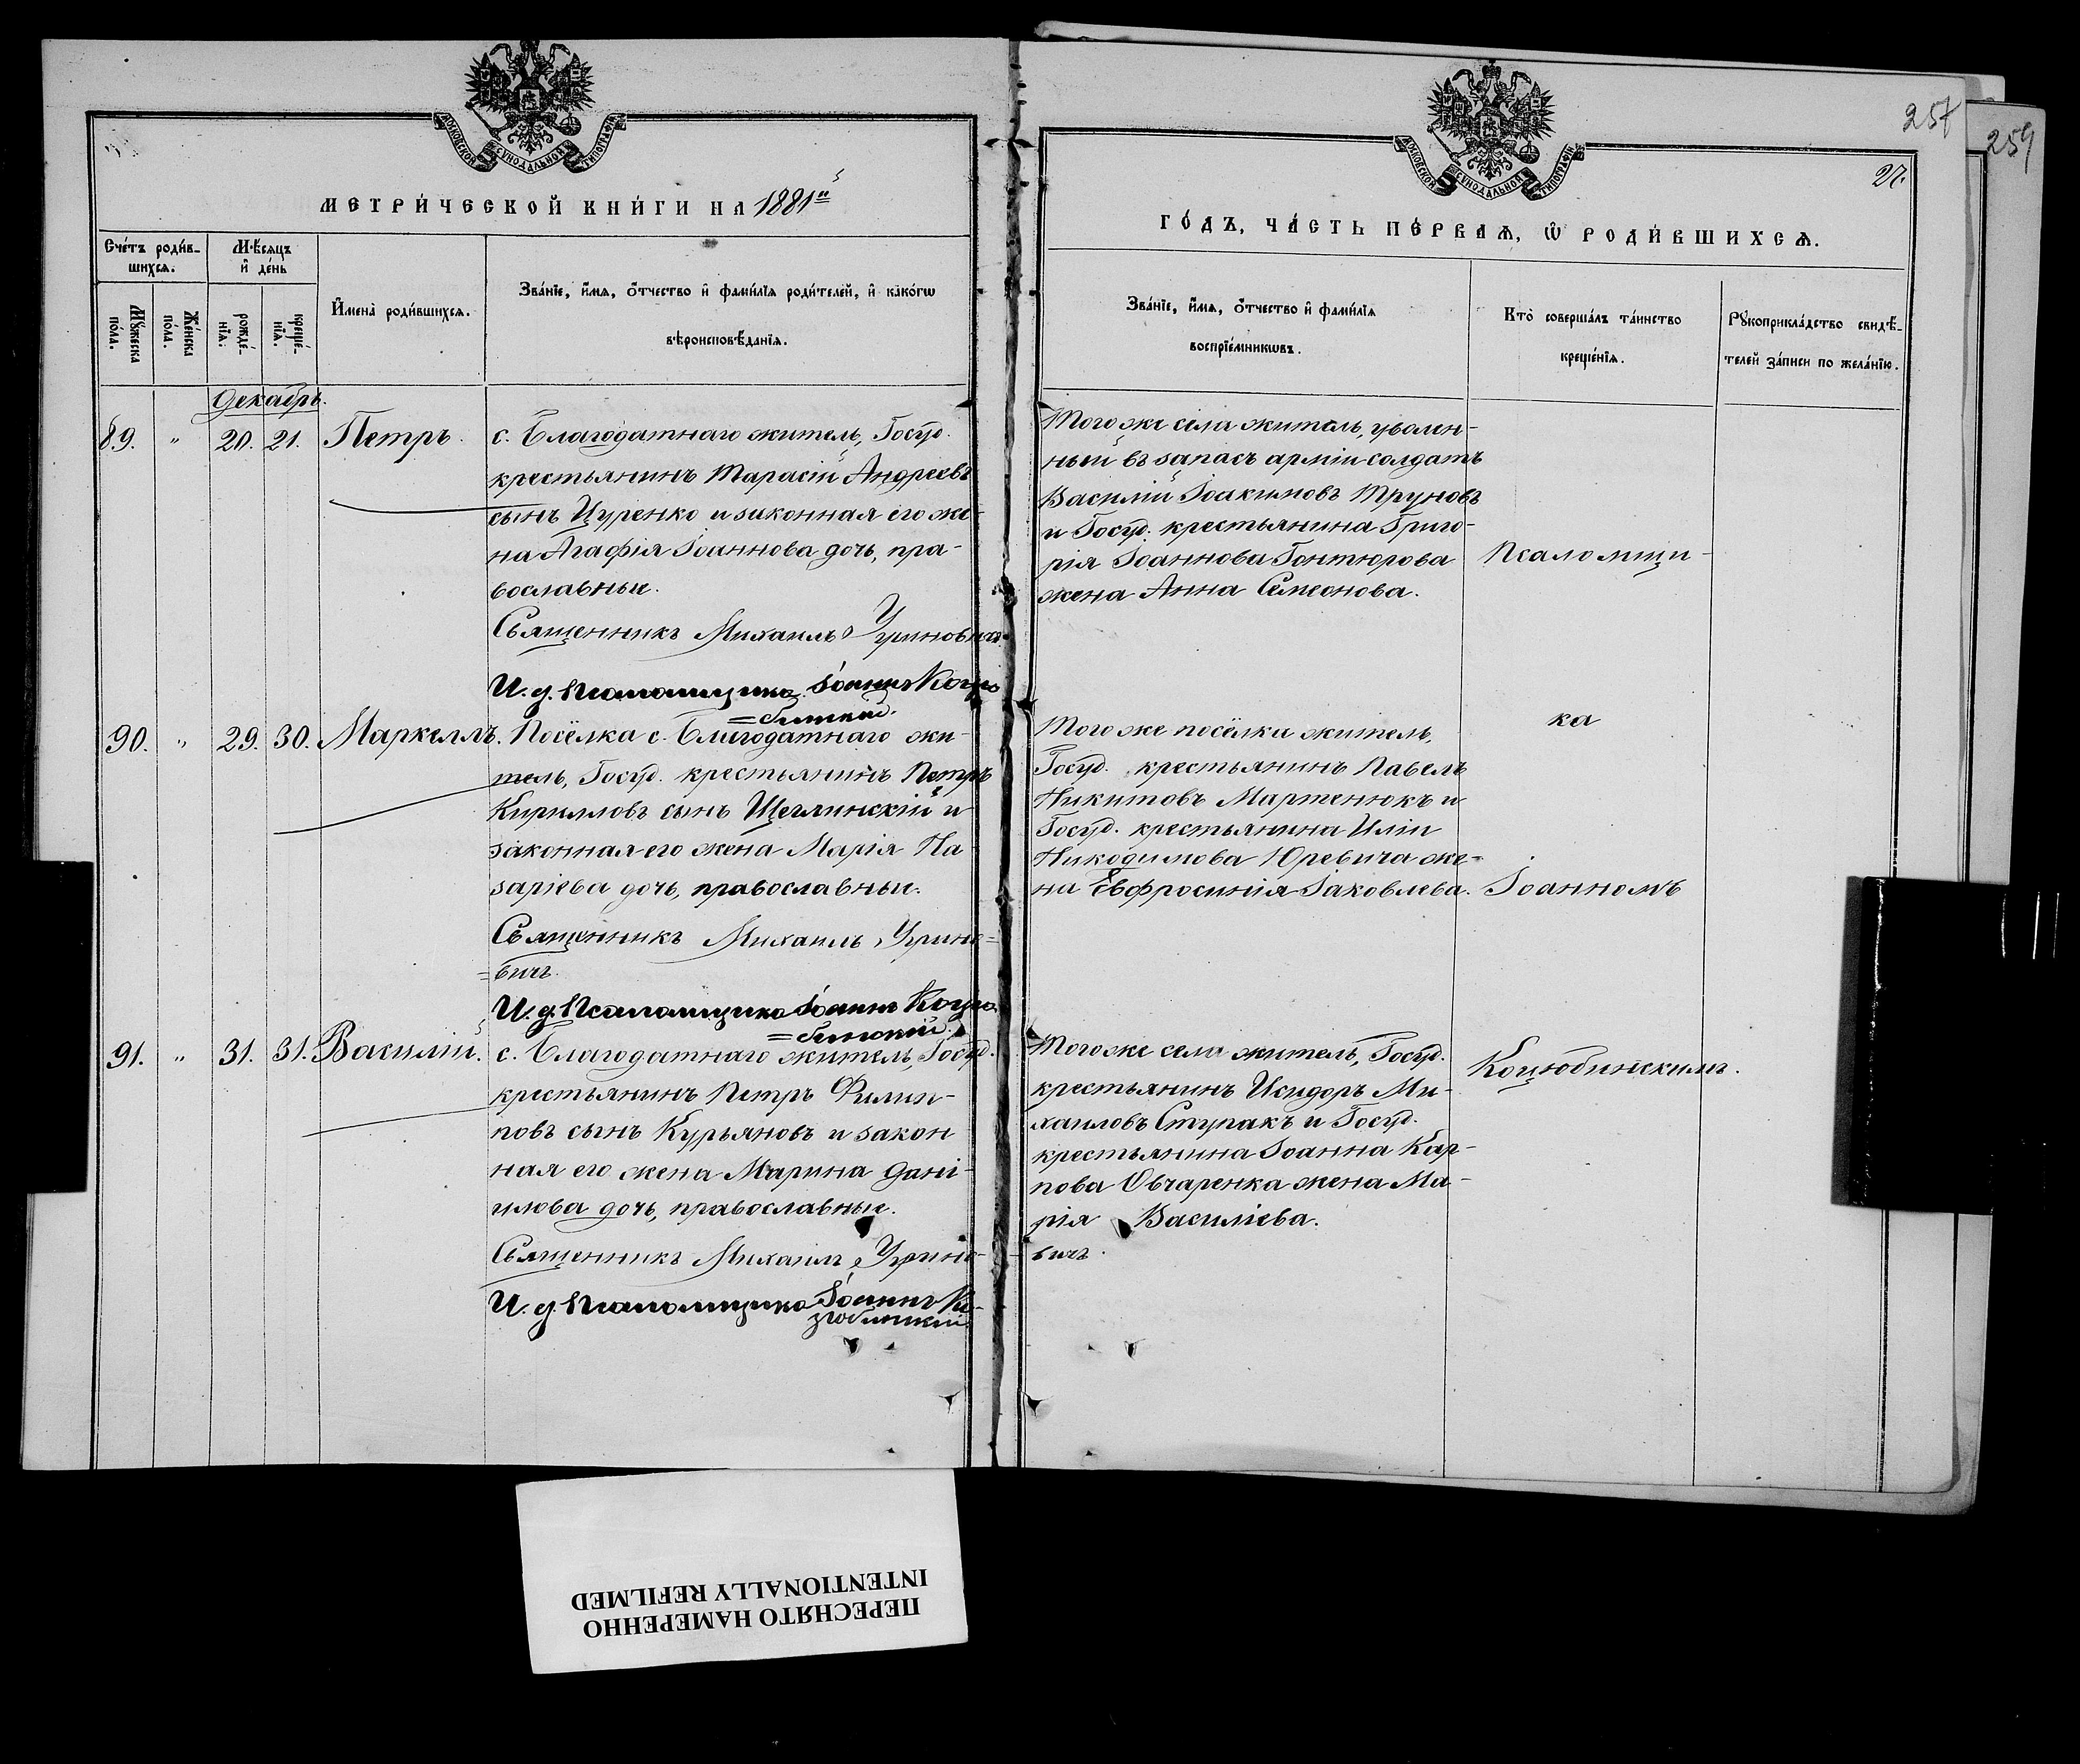 МОСКОВСКОЙ СУНОДАЛЬНОЙ ТИПОГРАФІИ
МЕТРИ́ЧЕСКОЙ КНИ́ГИ НА 1881й
Сче́тъ роди́в-
шихся.
Мѣ́сяцъ
и҆ де́нь
Мꙋ́жеска
по́ла.
Же́нска
по́ла.
рожде́-
нїя.
креще́-
нїя.
И҆мена̀ роди́вшихся.
Зва́нїе, и҆́мя, ѻ҆́тчество и҆ фами́лїя роди́телей, и҆ како́гѡ
вѣроисповѣ́данїя.
Декабрь.
89. " 20. 21. Петръ.
с. Благодатнаго житель, Госуд.
крестьянинъ Тарасій Андреевъ
сынъ Цуренко и законная его же-
на Агафія Іоаннова дочь, пра-
вославные.
Священникъ Михаилъ Угриновичъ
И. д. Псаломщика Іоаннъ Коцю-
=бинскій.
90. " 29. 30. Маркеллъ.
Посёлка с. Благодатнаго жи-
тель, Госуд. крестьянинъ Петръ
Кирилловъ сынъ Щеглинскій и
законная его жена Марія На-
заріева дочь, православные.
Священникъ Михаилъ Угрино=
=вичъ.
И. д. Псаломщика Іоаннъ Коцю-
=бинскій.
91. " 31. 31. Василій.
с. Благодатнаго житель, Госуд.
крестьянинъ Петръ Филип-
повъ сынъ Курьяновъ и закон
ная его жена Марина Дані-
илова дочь, православные.
Священникъ Михаилъ Угрино-
И. д. Псаломщика Іоаннъ Ко-
цюбинскій.
257
259
27.
МОСКОВСКОЙ СУНОДАЛЬНОЙ ТИПОГРАФІИ
ГО́ДЪ, ЧА́СТЬ ПЕ́РВАѦ, Ѡ҆ РОДИ́ВШИХСѦ.
Зва́нїе, и҆́мя, ѻ҆́тчество и҆ фами́лїя
воспрїе́мникѡвъ.
Кто̀ соверша́лъ та́инство
креще́нїя.
Рꙋкоприкла́дство свидѣ́-
телей за́писи по жела́нїю.
Того же села житель, уволен-
ный въ запасъ арміи солдатъ
Василій Іоакимовъ Труновъ
и Госуд. крестьянина Григо-
рія Іоаннова Гонтюрова
жена Анна Семеонова.
Псаломщи-
Того же посёлка житель,
Госуд. крестьянинъ Павелъ
Никитовъ Мартенюкъ и
Госуд. крестьянина Иліи
Никодимова Юревича же=
на Евфросинія Іаковлева.
ка
Іоанномъ
Того же села житель, Госуд.
крестьянинъ Исидоръ Ми-
хаиловъ Ступакъ и Госуд.
крестьянина Іоанна Кар-
пова Овчаренка жена Ма-
рія Василіева.
вичъ.
Коцюбинскимъ.
ПЕРЕСНЯТО НАМЕРЕННО
INTENTIONALLY REFILMED